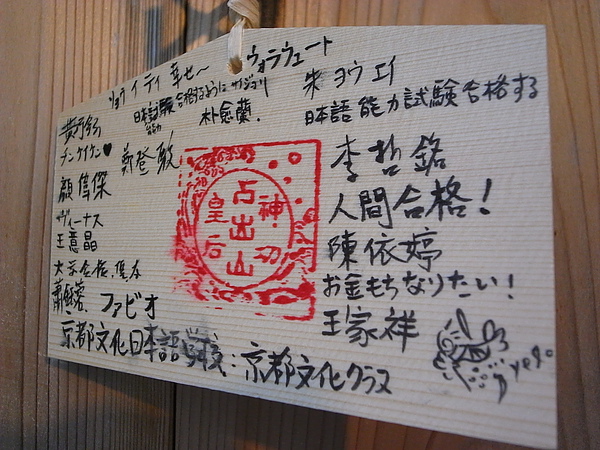 ショウ イ ティ 幸せ〜
ヴォラヴュート
日本語能力試験合格するように
朴愈蘭.
朱 ヨウ エイ
日本語能力試験合格する
チンケイケン♥
鄭登敏
顧雋傑
ヴィーナス
王意晶
ファビオ
李哲銘
人間合格!
陳依婷
お金もちなりたい!
王家祥
京都文化日本語学校:京都文化クラス
占出山
神功
皇后